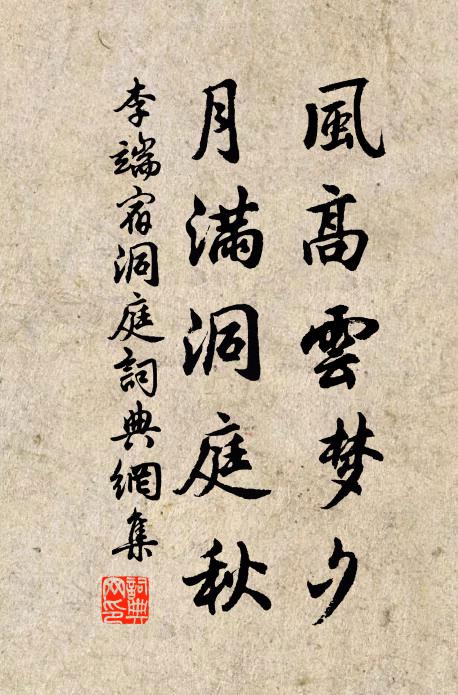 風高雲梦夕
月满洞庭秋
李端宿洞庭詞典網集
詞典网印